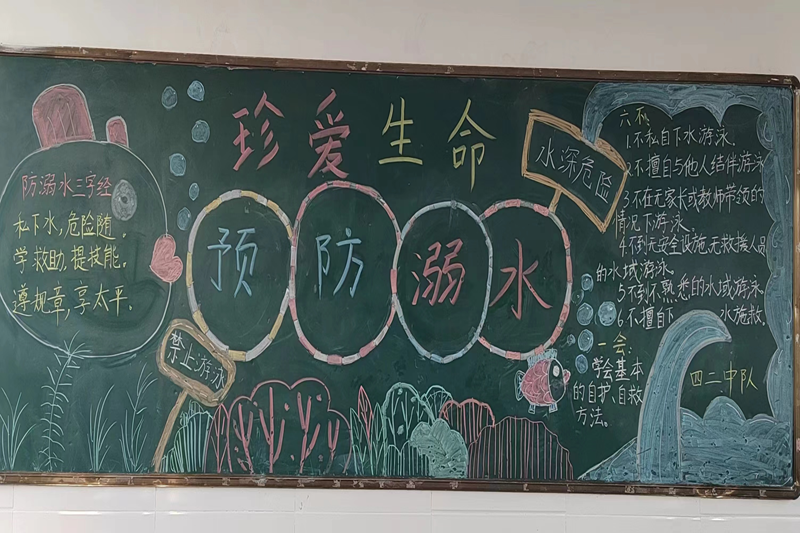 珍爱生命
预防溺水
防溺水三字经
私下水,危险随。
学救助,提技能。
遵规章,享太平。
禁止游泳
水深危险
六不
1.不私自下水游泳.
2.不擅自与他人结伴游泳
3.不在无家长或教师带领的
情况下游泳.
4.不到无安全设施,无救援人员
的水域游泳。
5.不到不熟悉的水域游泳.
6.不擅自下 水施救.
一会:
学会基本
的自护、自救
方法。
四二中队